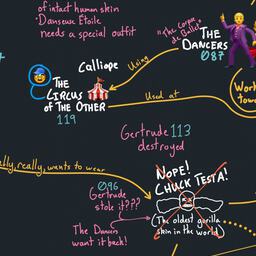 of intact human skin
· Danseur Étoile
needs a special outfit
"The Corps
de Ballet"
THE
DANCERS
087
Calliope
Using
THE
CIRCUS
OF THE OTHER
119
Used at
Work
Gertrude 113
destroyed
really, really, wants to wear
NOPE!
CHUCK TESTA!
096
Gertrude
stole it???
(The oldest gorilla
skin in the world)
The Dancers
want it back!